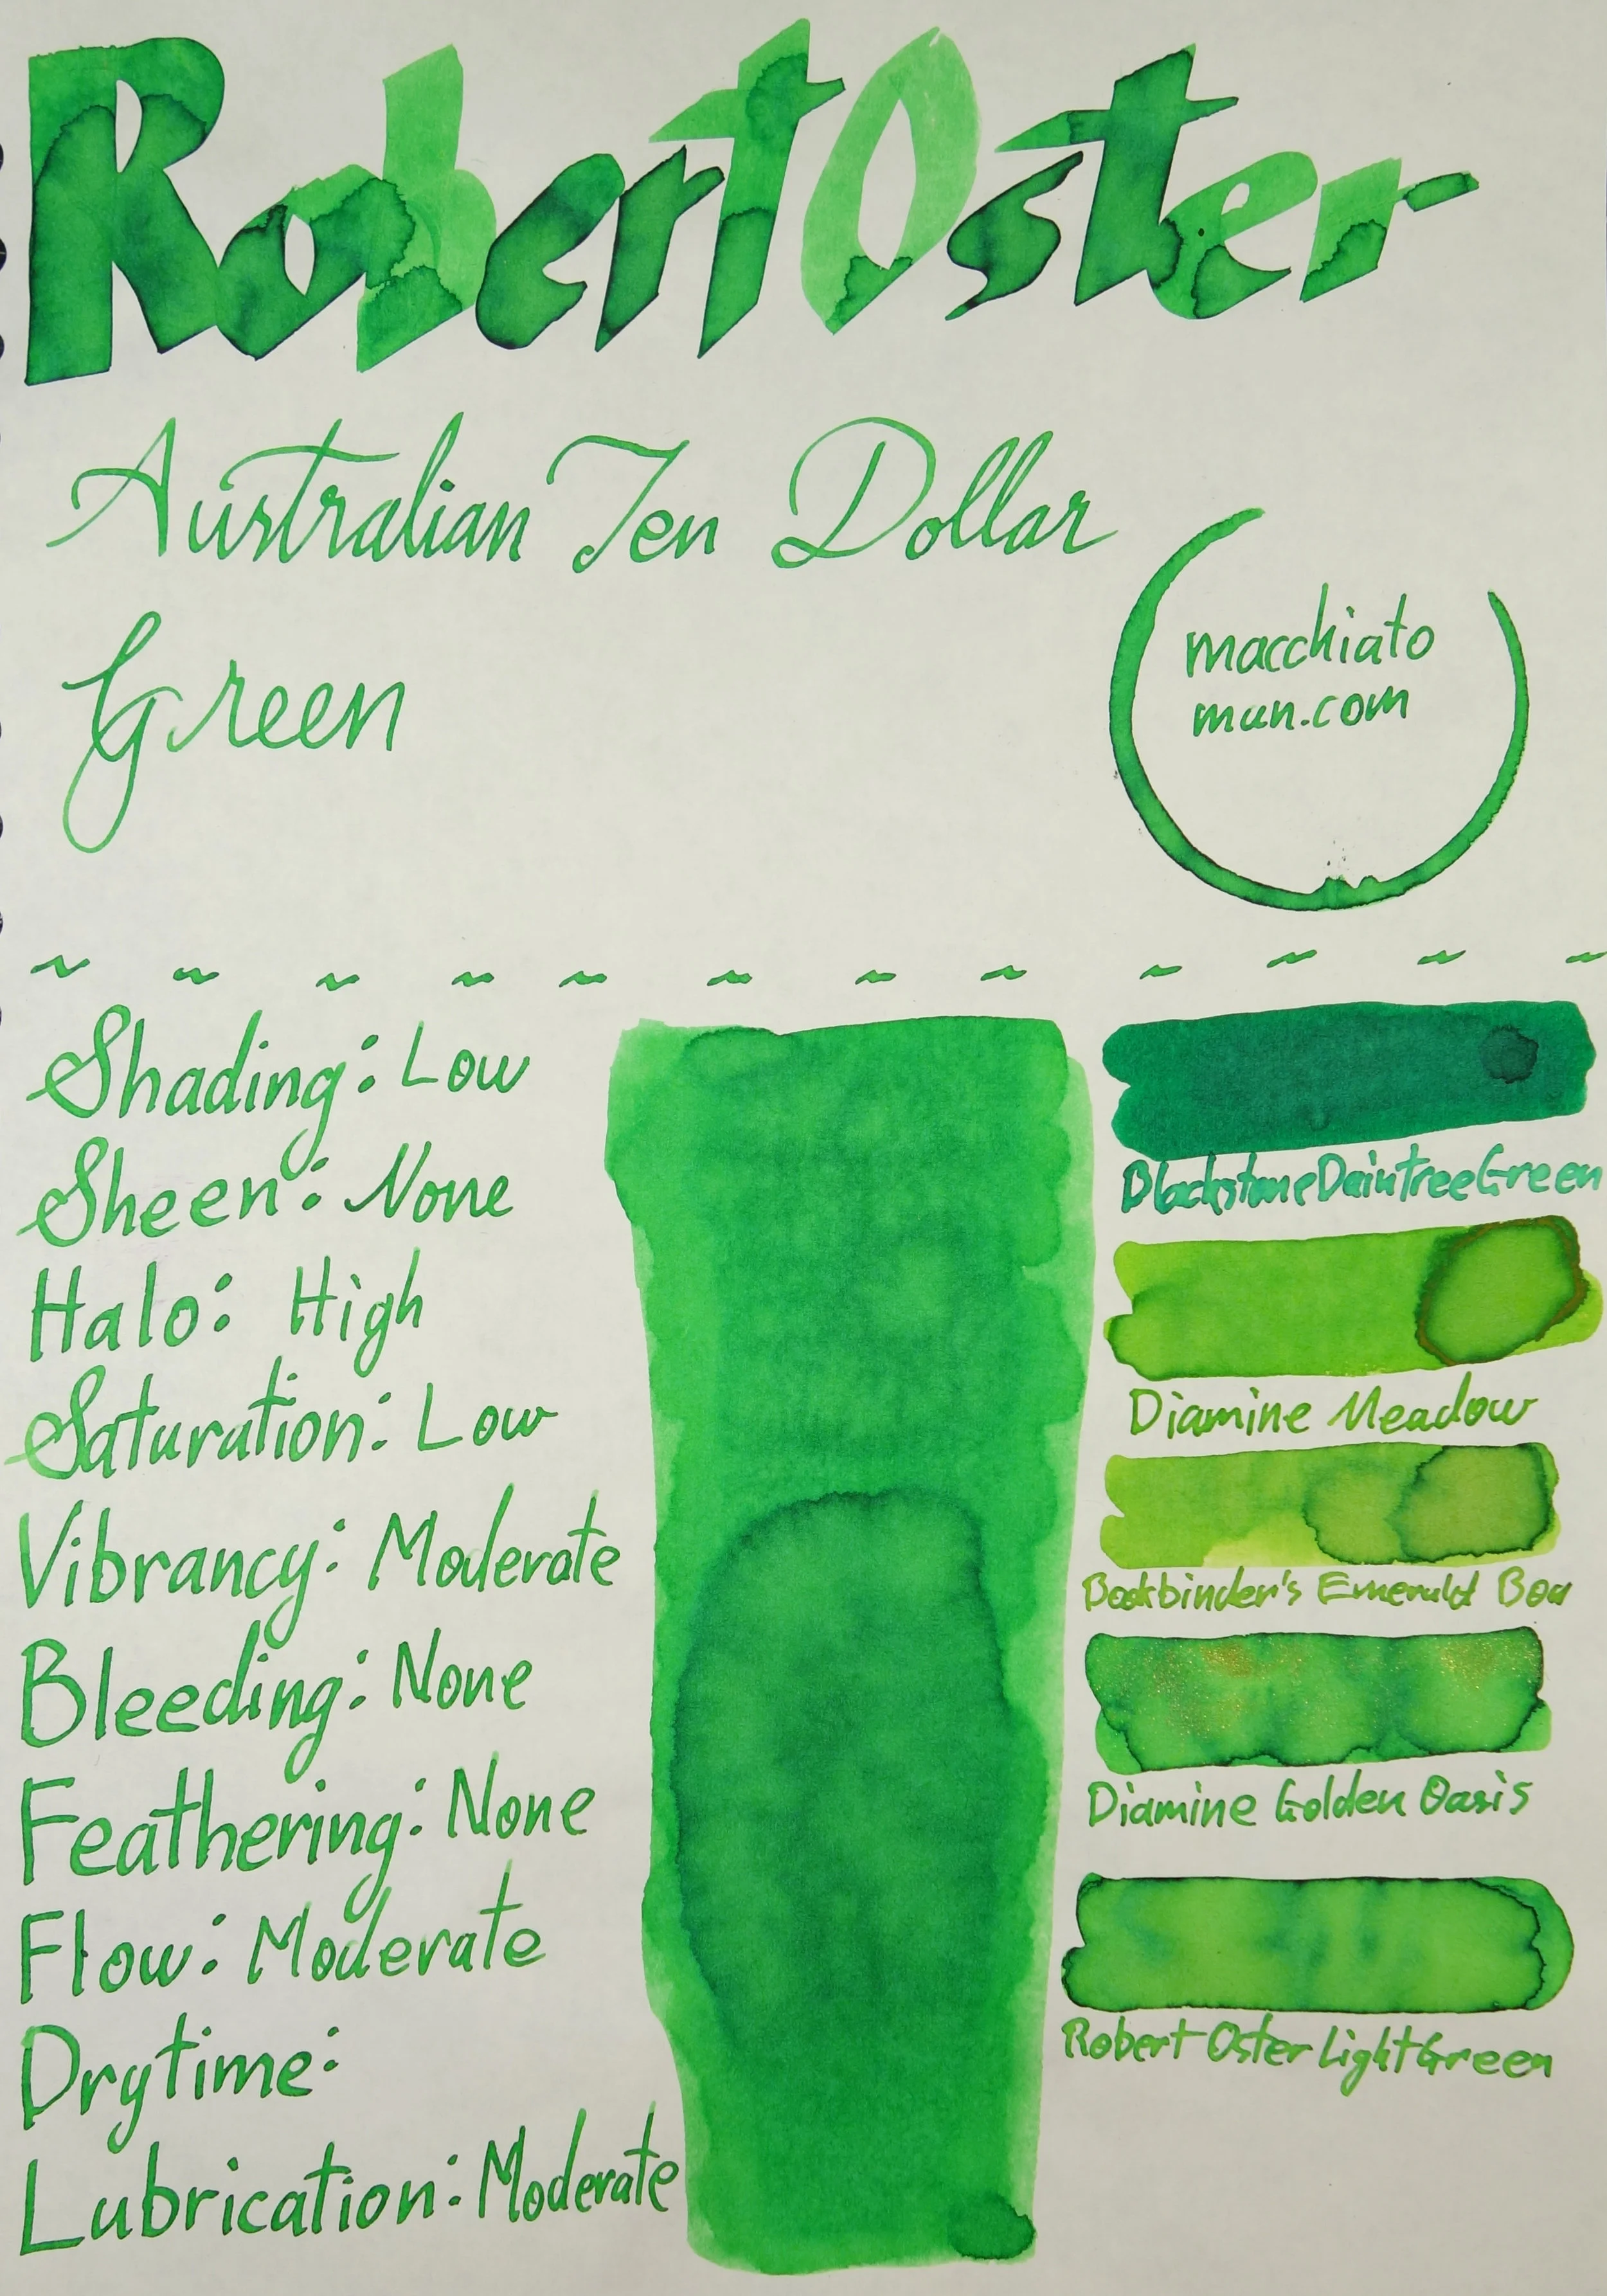 Robert Oster
Australian Ten Dollar
Green
macchiato
man.com
~ ~ ~ ~ ~ ~ ~ ~ ~ ~ ~ ~
Shading: Low
Sheen: None
Halo: High
Saturation: Low
Vibrancy: Moderate
Bleeding: None
Feathering: None
Flow: Moderate
Drytime:
Lubrication: Moderate
Blackstone Daintree Green
Diamine Meadow
Bookbinder's Emerald Boa
Diamine Golden Oasis
Robert Oster Light Green